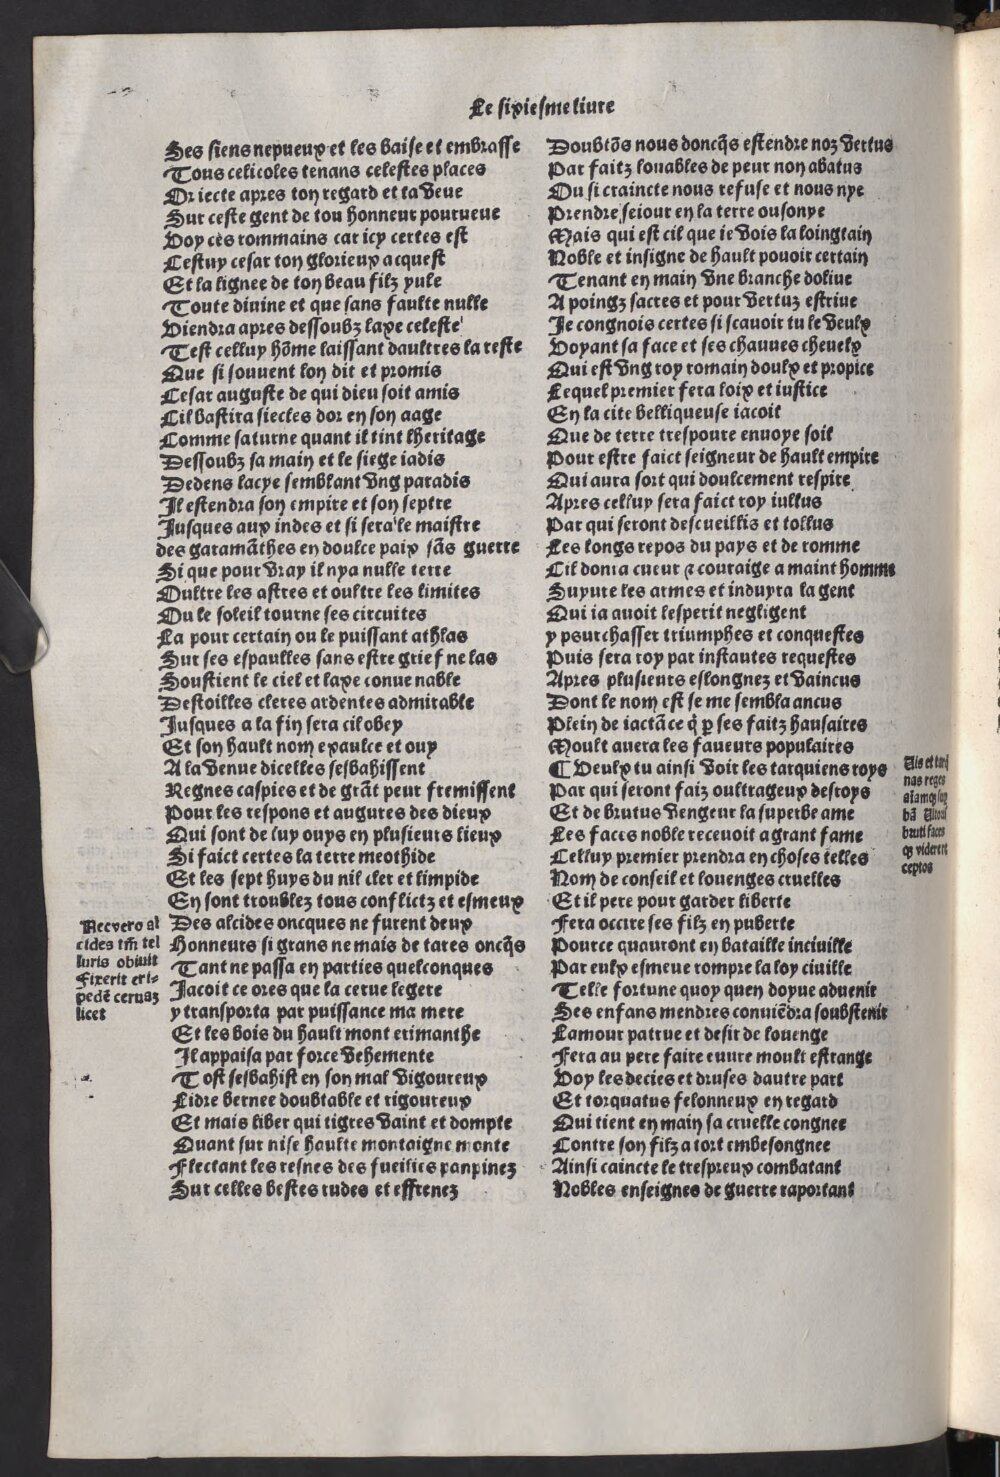 Le sixiesme livre
Ses siens nepueux et les baise et embrasse
Tous celicoles tenans celestes places
Or iecte apres ton regard et ta veue
Sur ceste gent de tou honneur pourueue
Voy ces rommains car icy certes est
Cestuy cesar ton glorieux acquest
Et la lignee de ton beau filz yule
Toute diuine et que sans faulte nulle
Viendra apres dessoubz laxe celeste
Test celluy hõme laissant daultres la reste
Que si souuent lon dit et promis
Cesar auguste de qui dieu soit amis
Cil bastira siecles dor en son aage
Comme saturne quant il tint lheritage
Dessoubz sa main et le siege iadis
Dedens lacye semblant vng paradis
Il estendra son empire et son septre
Jusques aux indes et si sera le maistre
des garamãthes en doulce paix sãs guerre
Si que pour vray il nya nulle terre
Oultre les astres et oultre les limites
Ou le soleil tourne ses circuites
La pour certain ou le puissant athlas
Sur ses espaulles sans estre grief ne las
Soustient le ciel et laxe conue nable
Destoilles cleres ardentes admirable
Jusques a la fin sera cil obey
Et son hault nom exaulce et ouy
A la venue dicelles sesbahissent
Regnes caspies et de grãt peur fremissent
Pour les respons et augures des dieux
Qui sont de luy ouys en plusieurs lieux
Si faict certes la terre meothide
Et les sept huys du nil cler et limpide
En sont troublez tous conflictz et esmeux
Des alcides oncques ne furent deux
Honneurs si grans ne mais de tares oncq̃s
Tant ne passa en parties quelconques
Jacoit ce ores que la cerue legere
y transporta par puissance ma mere
Et les bois du hault mont erimanthe
Il appaisa par force vehemente
Tost sesbahist en son mal vigoureux
Lidre bernee doubtable et rigoureux
Et mais liber qui tigres vaint et dompte
Quant sur nise haulte montaigne monte
Flectant les resnes des fueilles panpinez
Sur celles bestes rudes et effrenez
Nec vero al
cides tm̃ tel
luris obiuit
Fixerit eri-
pedẽ ceruaz
licet
Doubtõs nous doncq̃s estendre noz vertus
Par faitz louables de peur non abatus
Ou si craincte nous refuse et nous nye
Prendre seiour en la terre ousonye
Mais qui est cil que ie vois la loingtain
Noble et insigne de hault pouoir certain
Tenant en main vne branche doliue
A poingz sacres et pour vertuz estriue
Je congnois certes si scauoir tu le veulx
Voyant sa face et ses chauues cheuelx
Qui est vng roy romain doulx et propice
Lequel premier fera loix et iustice
En la cite belliqueuse iacoit
Que de terre trespoure enuoye soit
Pour estre faict seigneur de hault empire
Qui aura sort qui doulcement respire
Apres celluy sera faict roy iullus
Par qui seront descueillis et tollus
Les longs repos du pays et de romme
Cil donra cueur ⁊ couraige a maint homme
Suyure les armes et induyra la gent
Qui ia auoit lesperit negligent
y psurchasser triumphes et conquestes
Puis sera roy par instautes requestes
Apres plusieurs eslongnez et vaincus
Dont le nom est se me sembla ancus
Plein de iactãce q̃ ꝑ ses faitz hausaires
Moult auera les faueurs populaires
¶ Veulx tu ainsi voir les tarquiens roys
Par qui seront faiz oultrageux desroys
Et de brutus vengeur la superbe ame
Les faces noble receuoit a grant fame
Celluy premier prendra en choses telles
Nom de conseil et louenges cruelles
Et il pere pour garder liberte
Fera occire ses filz en puberte
Pource quauront en bataille inciuille
Par eulx esmeue rompre la loy ciuille
Telle fortune quoy quen doyue aduenir
Ses enfans mendres conuiẽdra soubstenir
Lamour patrue et desir de louenge
Fera au pere faire euure moult estrange
Voy les decies et druses dautre part
Et torquatus felonneux en regard
Qui tient en main sa cruelle congnee
Contre son filz a tort embesongnee
Ainsi caincte le trespreux combatant
Nobles enseignes de guerre raportant
Uis et tarq̃
nas reges
aiamq̃ sup
bã Ultoris
bruti faces
q̃ viderere
ceptos